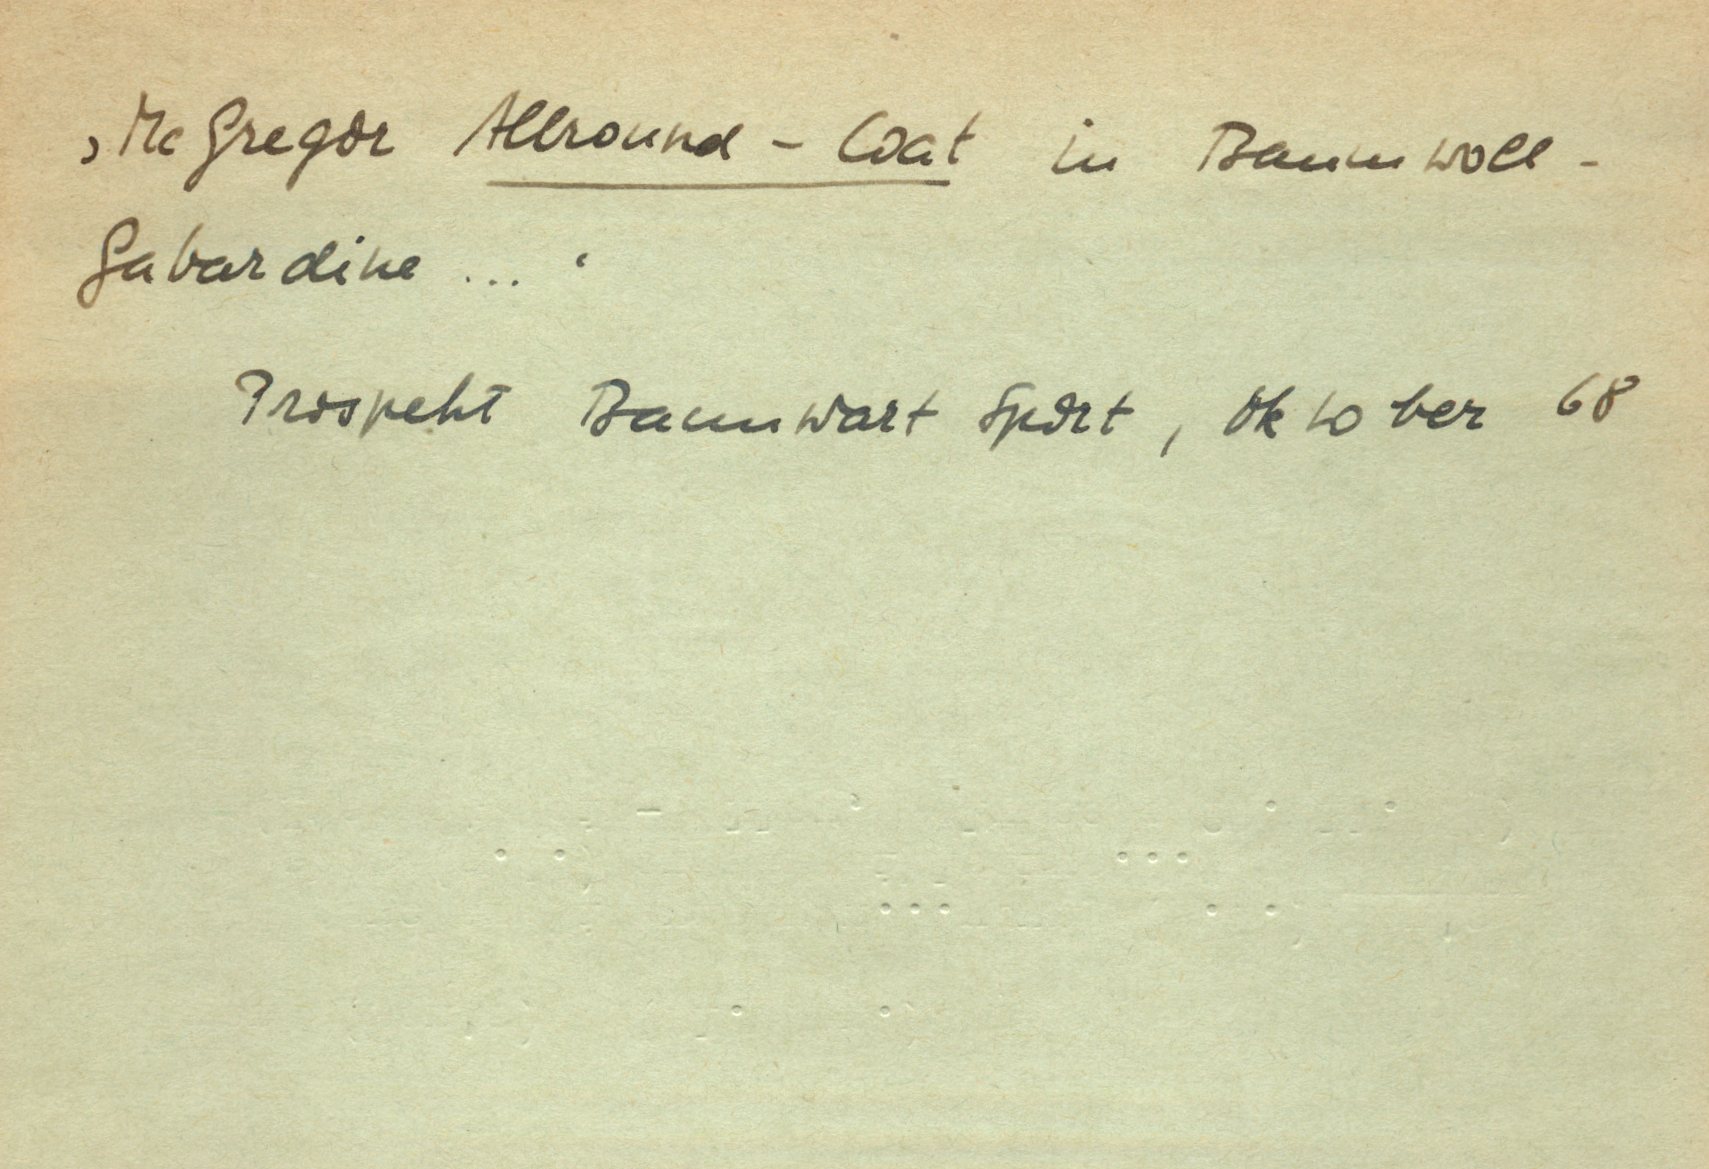 ‚McGregor Allround-Coat in Baumwoll-
Gabardine ...‘
Prospekt Baumwart Sport, Oktober 68